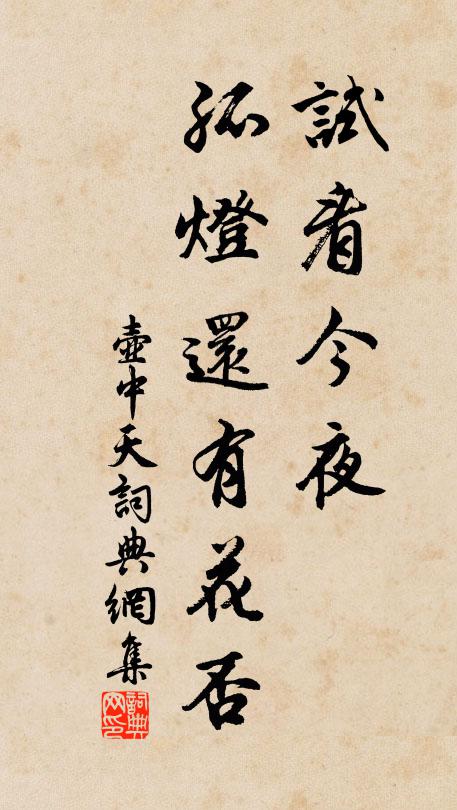 試看今夜
孤燈還有花否
壺中天詞典網集
詞典
网印